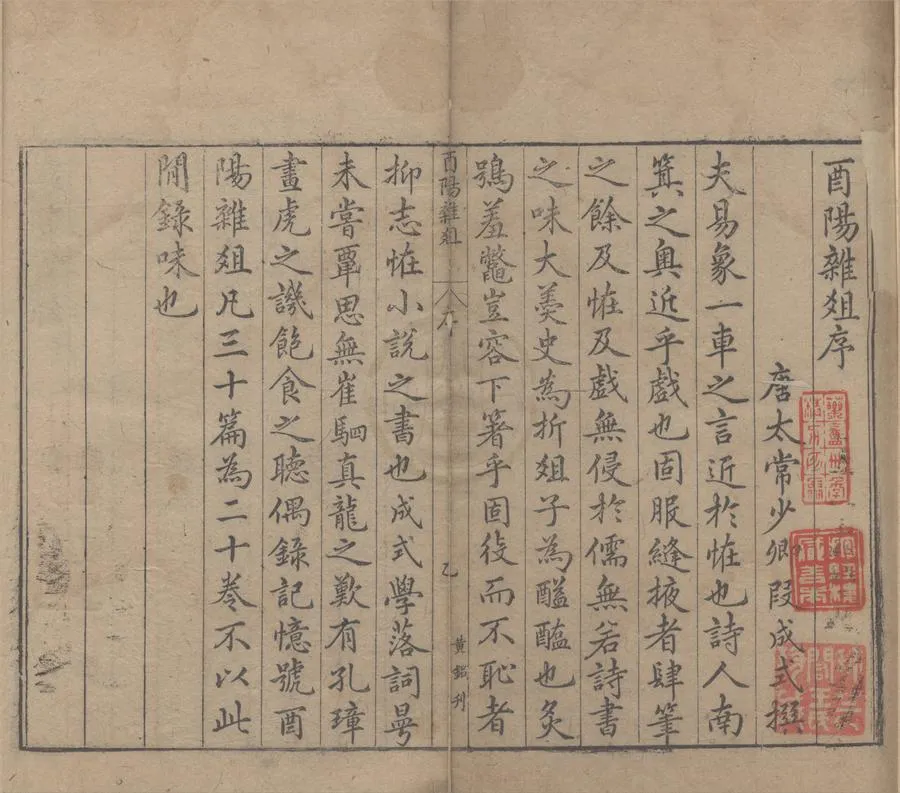 酉陽雜俎序
唐太常少卿段成式撰
夫易象一車之言近於恠也詩人南
箕之奥近乎戲也固服縫掖者肆筆
之餘及恠及戲無侵於儒無若詩書
之味大羹史為折俎子為醯醢也炙
鴞羞鼈豈容下箸乎固役而不恥者
酉陽雜俎
序
乙
黄鉞刊
抑志恠小說之書也成式學落詞曼
未嘗覃思無崔駰真龍之歎有孔璋
畫虎之譏飽食之聰偶錄記憶號酉
陽雜俎凡三十篇為二十卷不以此
間錄味也